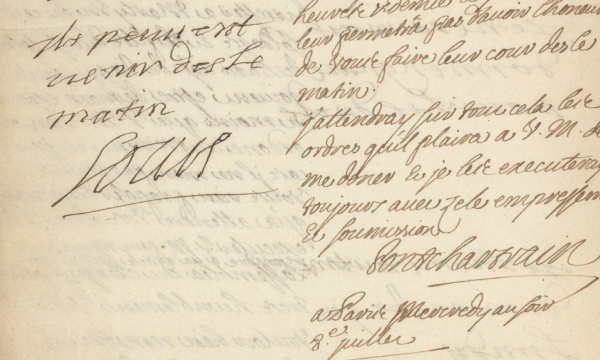 Ils peuvent
venir des le
matin
Louis
leur permetra pas d'avoir l'honneur
de vous faire leur cour des le
matin.
J'attendray sur tout cela les
ordres qu'il plaira a V. M. de
me doner et je les executeray
toujours avec zele empressem
Et soumission
Pontchartrain
a Paris Mercredy au soir
8.e juillet